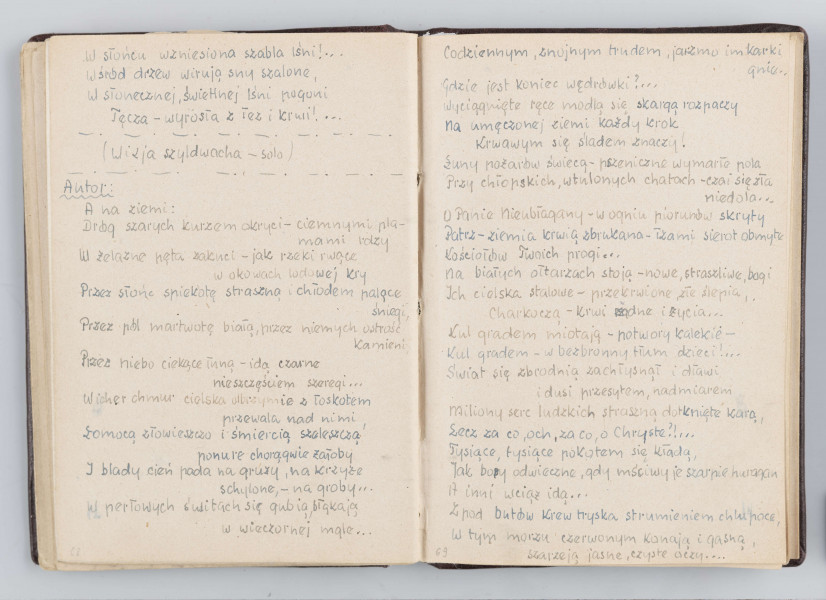 W słońcu wzniesiona szabla lśni!...
Wśród drzew wirują sny szalone,
W słonecznej, świetlnej lśni pogoni
Tęcza – wyrosła z łez i krwi!...
(Wizja szyldwacha – solo)
Autor:
A na ziemi:
Drogą szarych kurzem okryci – ciemnymi pla-
mami rdzy
W żelazne pęta zakuci – jak rzeki rwące
w okowach lodowej kry
Przez słońc spiekotę straszną i chłodem palące
śniegi,
Przez pól martwotę białą, przez niemych ostrość
kamieni,
Przez niebo ciekące łuną – idą czarne
nieszczęściem szeregi...
Wicher chmur cielska olbrzymie z łoskotem
przewala nad nimi,
Łomocą złowieszczo i śmiercią szeleszczą
ponure chorągwie żałoby
I blady cień pada na gruzy, na krzyże
schylone, – na groby...
W perłowych świtach się gubią, błąkają
w wieczornej mgle...
Codziennym, znojnym trudem, jarzmo im karki
gnie...
Gdzie jest koniec wędrówki?...
Wyciągnięte ręce modlą się skargą rozpaczy
Na umęczonej ziemi każdy krok
Krwawym się śladem znaczy!
Łuny pożarów świecą – pszeniczne wymarłe pola
Przy chłopskich, wtulonych chatach – czai się zła
niedola...
O Panie Nieubłagany – w ogniu piorunów skryty
Patrz – ziemia krwią zbrukana – łzami sierot obmyte
Kościołów Twoich progi...
Na białych ołtarzach stoją – nowe, straszliwe, bogi
Ich cielska stalowe – przekrwione, złe ślepia,
Charkoczą – krwi żądne i życia...
Kul gradem miotają – potwory kalekie –
Kul gradem – w bezbronny tłum dzieci!...
Świat się zbrodnią zachłysnął i dławi
i dusi przesytem, nadmiarem
Miliony serc ludzkich straszną dotknięte karą,
Lecz za co, och, za co, o Chryste?!...
Tysiące, tysiące pokotem się kładą,
Jak bory odwieczne, gdy mściwy je szarpie huragan
A inni wciąż idą...
Z pod butów krew tryska strumieniem chlupoce,
W tym morzu czerwonym konają i gasną,
szarzeją jasne, czyste oczy....
63